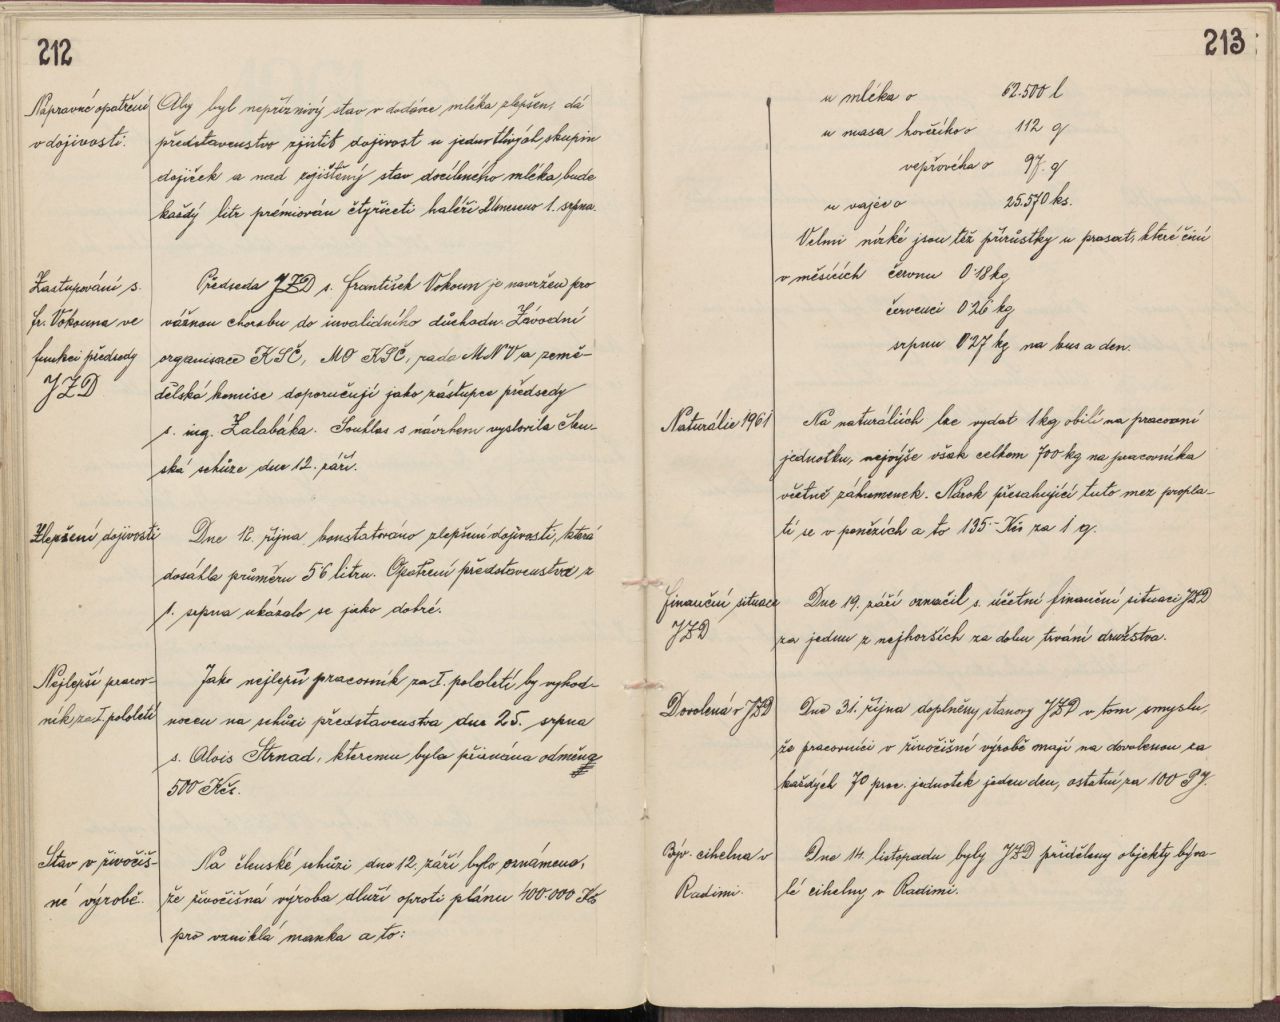 212
Nápravné opatření
v dojivosti.
Aby byl nepříznivý stav v dodávce mléka zlepšen, dá
představenstvo zjistit dojivost u jednotlivých skupin
dojiček a nad zjištěný stav docíleného mléka, bude
každý litr prémiován čtyřiceti haléři. Usneseno 1. srpna.
Zastupování s.
fr. Vokouna ve
funkci předsedy
JZD
Předseda JZD s. František Vokoun je navržen pro
vážnou chorobu do invalidního důchodu. Závodní
organisace KSČ, MO KSČ, rada MNV a země-
dělská komise doporučují jako zástupce předsedy
s. ing. Zalabáka. Souhlas s návrhem vyslovila člen-
ská schůze dne 12. září.
Zlepšení dojivosti
Dne 12. října konstatováno zlepšení dojivosti, která
dosáhla průměru 5'6 litru. Opatření představenstva z
1. srpna ukázalo se jako dobré.
Nejlepší pracov-
ník za I. pololetí
Jako nejlepší pracovník za I. pololetí byl vyhod-
nocen na schůzi představenstva dne 25. srpna
s. Alois Strnad, kterému byla přiznána odměna
500 Kčs.
Stav v živočiš-
né výrobě.
Na členské schůzi dne 12. září bylo oznámeno,
že živočišná výroba dluží oproti plánu 400.000 Kčs
pro vzniklá manka a to:
213
u mléka o 62.500 l
u masa hovězího o 112 q
vepřového o 97. q
u vajec o 25.570 ks.
Velmi nízké jsou též přírůstky u prasat, které činí
v měsících červnu 0'18 kg
červenci 0'26 kg
srpnu 0'27 kg na kus a den.
Naturálie 1961
Na naturáliích lze vydat 1 kg obilí na pracovní
jednotku, nejvýše však celkem 700 kg na pracovníka
včetně záhumenek. Nárok přesahující tuto mez propla-
tí se v penězích a to 135.- Kčs za 1 q.
Finanční situace
JZD
Dne 19. září označil s. účetní finanční situaci JZD
za jednu z nejhorších za dobu trvání družstva.
Dovolená v JZD
Dne 31. října doplněny stanovy JZD v tom smyslu,
že pracovníci v živočišné výrobě mají na dovolenou za
každých 70 prac. jednotek jeden den, ostatní za 100 PJ.
Býv. cihelna v
Radimi.
Dne 14. listopadu byly JZD přiděleny objekty býva-
lé cihelny v Radimi.